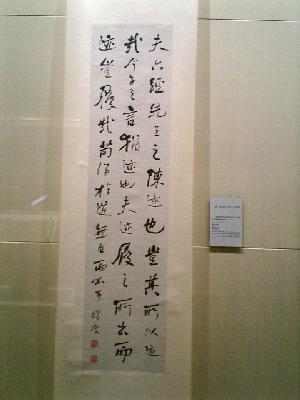 夫六經先王之陳迹也豈其所以迹
哉今子之言猶迹也夫迹履之所出而
迹豈履哉苟得於道無自而不可